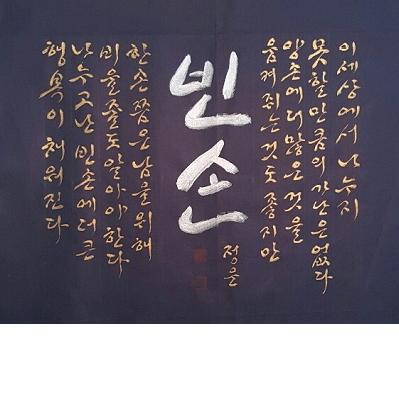 이 세상에서 나누지
못할 만큼의 가난은 없다
양손에 더 많은 것을
움켜쥐는 것도 좋지만
빈손
한 손쯤은 남을 위해
비울 줄도 알아야 한다
나누고 난 빈손에 더 큰
행복이 채워진다